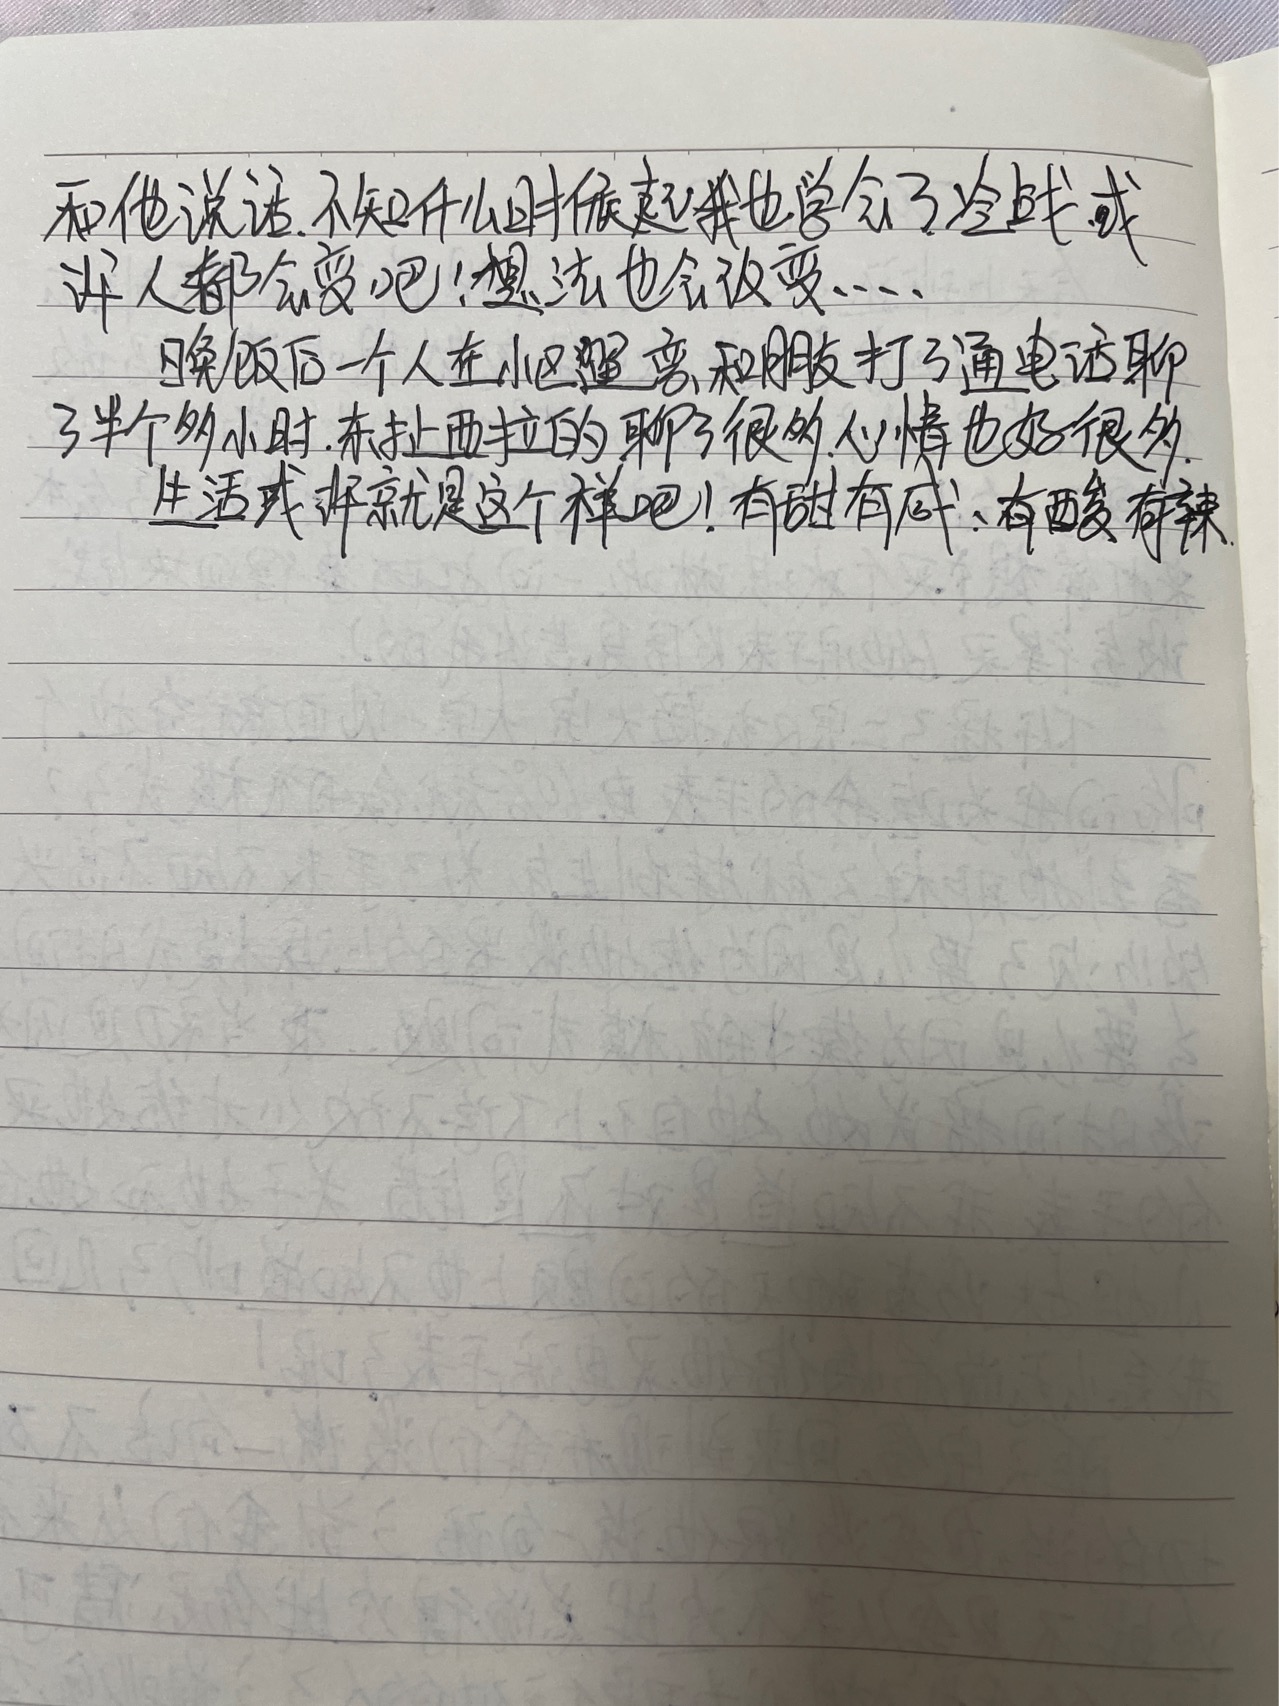 和他说话.不知什么时候起我也学会了冷战.或
许人都会变吧!想法也会改变....
晚饭后一个人在小区遛弯.和朋友打了通电话聊
了半个多小时.东扯西拉的聊了很多.心情也好很多.
生活或许就是这个样吧!有甜有咸、有酸有辣.